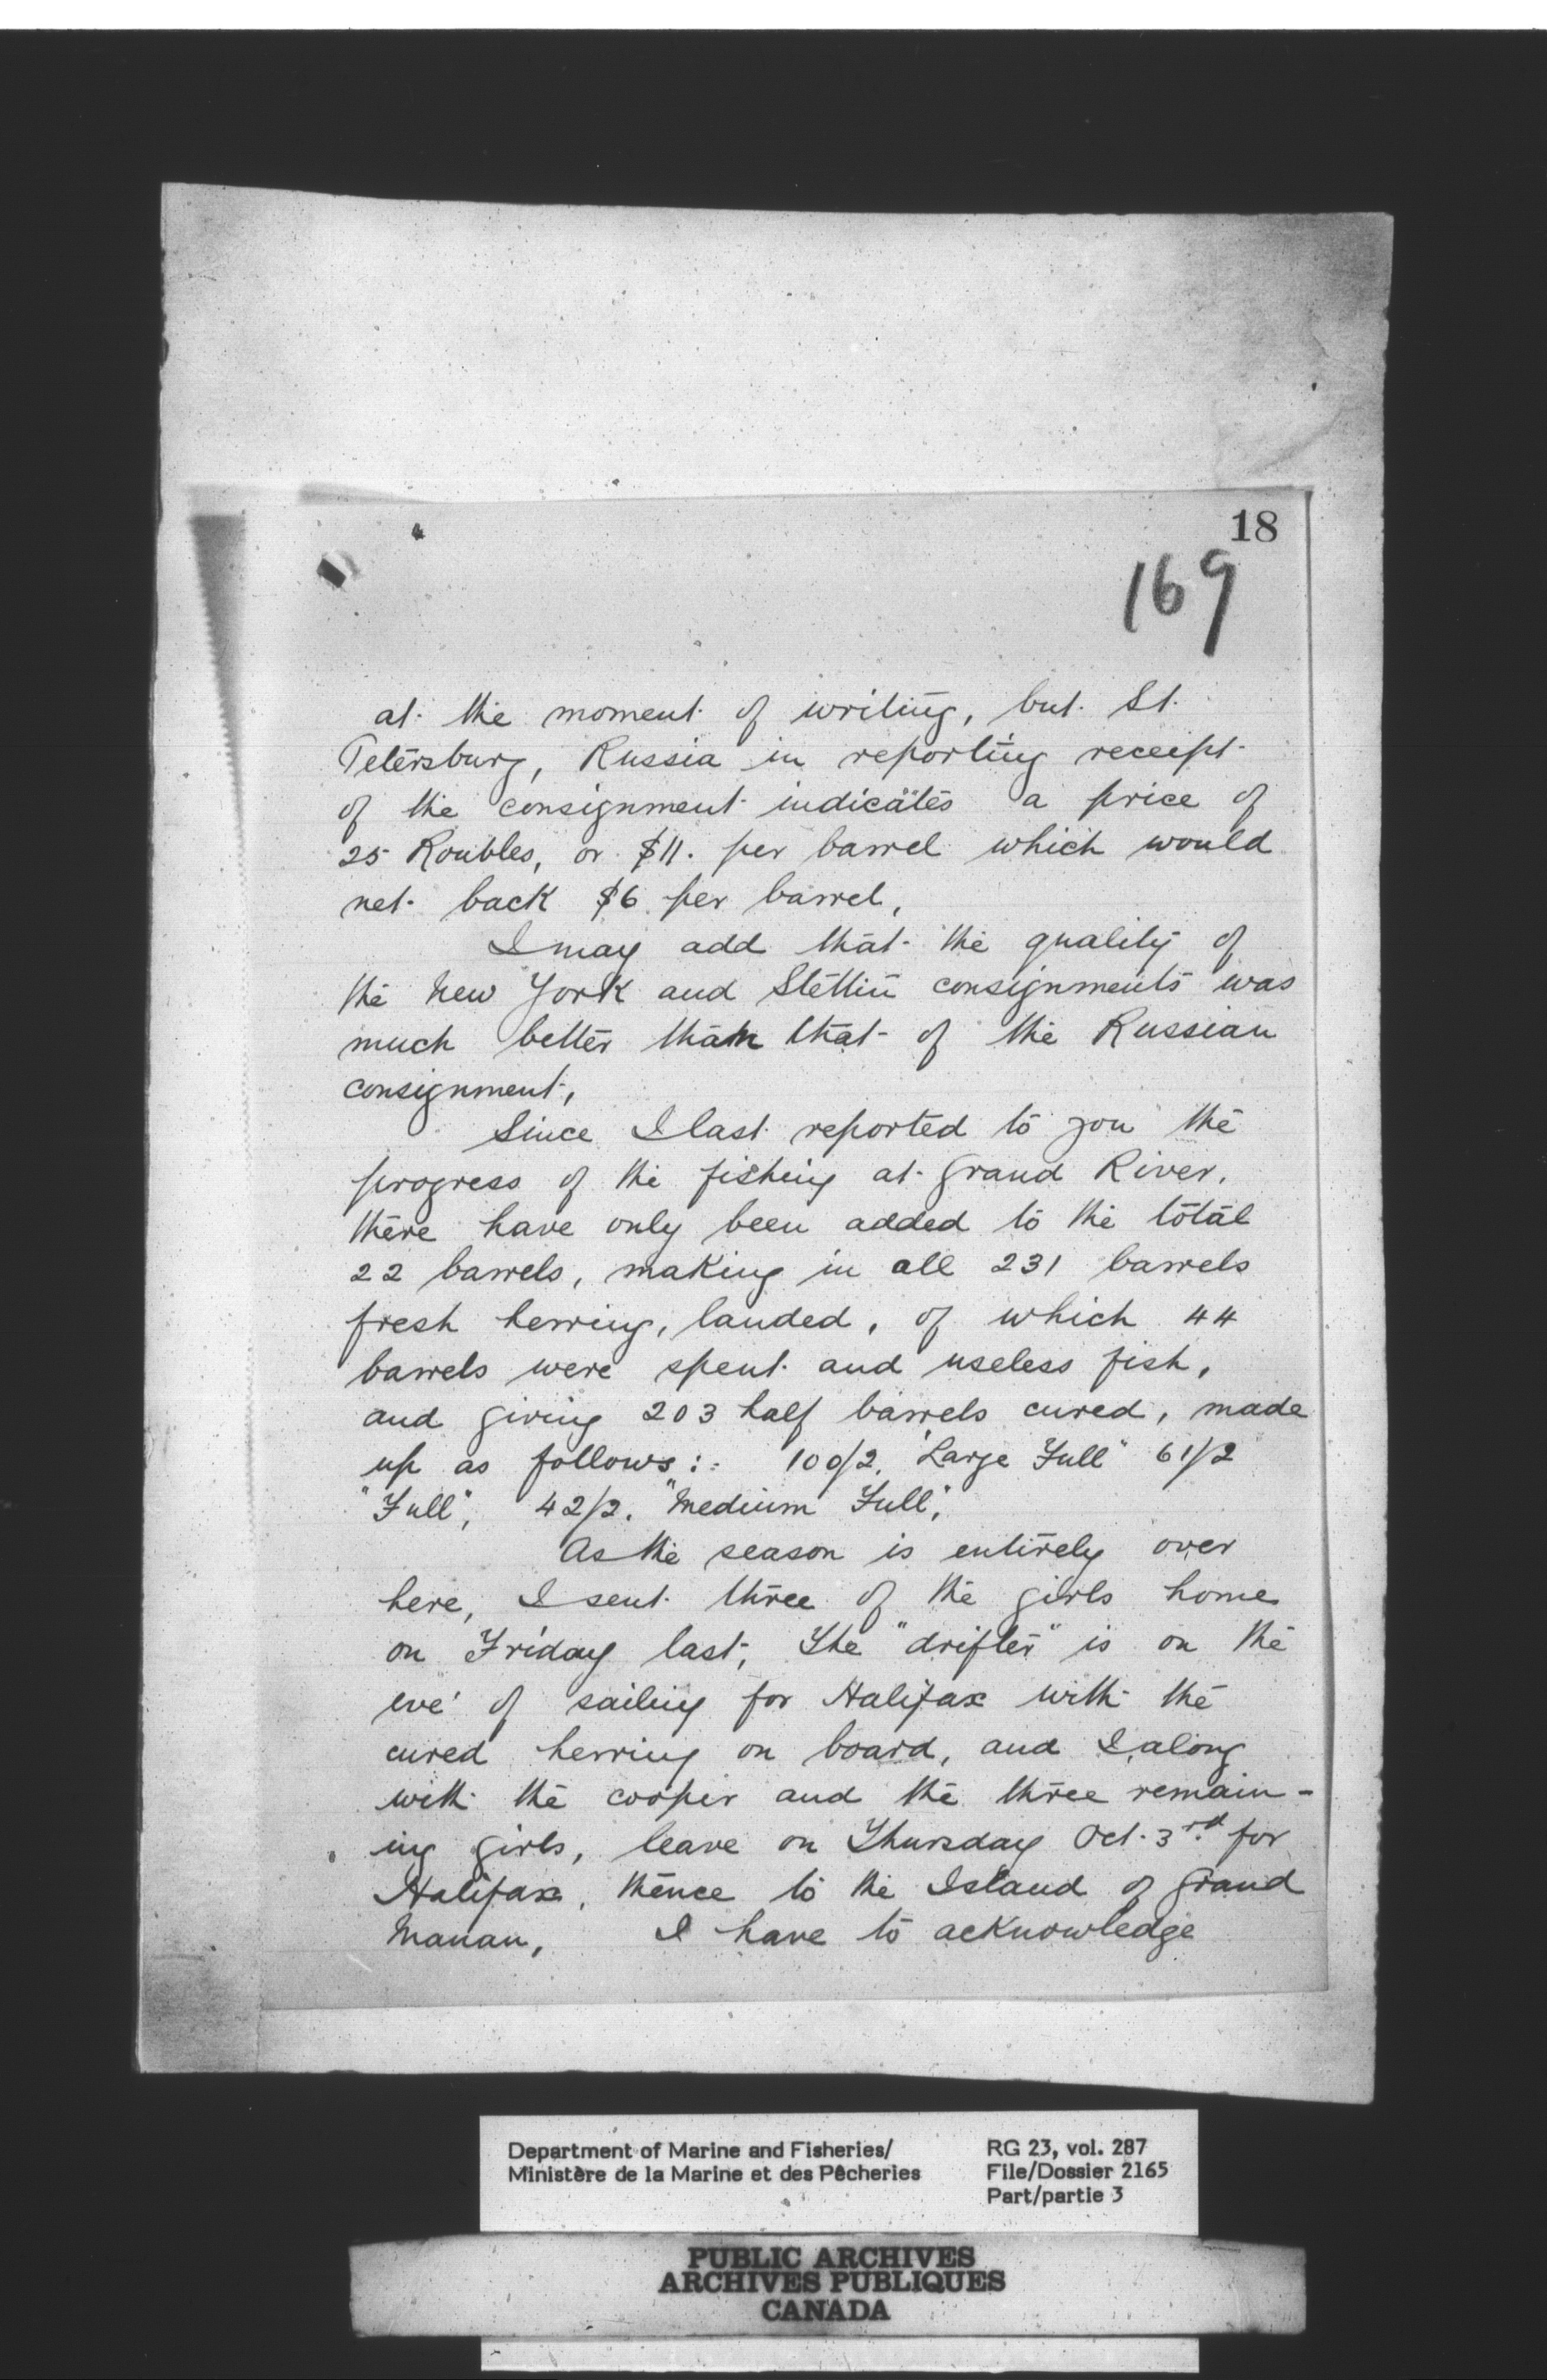 18
169
at the moment of writing, but St.
Petersburg, Russia in reporting receipt
of the consignment indicates a price of
25 Roubles, or $11. per barrel which would
net back $6 per barrel,
I may add that the quality of
the New York and Stettin consignments was
much better than that of the Russian
consignment,
Since I last reported to you the
progress of the fishing at Grand River,
there have only been added to the total
22 barrels, making in all 231 barrels
fresh herring, landed, of which 44
barrels were spent and useless fish,
and giving 203 half barrels cured, made
up as follows:- 100/2, "Large Full" 61/2
"Full", 42/2, "Medium Full",
As the season is entirely over
here, I sent three of the girls home
on Friday last, The "drifter" is on the
eve of sailing for Halifax with the
cured herring on board, and I, along
with the cooper and the three remain-
ing girls, leave on Thursday Oct. 3rd for
Halifax, thence to the Island of Grand
Manan, I have to acknowledge
Department of Marine and Fisheries/
Ministère de la Marine et des Pêcheries
RG 23, vol. 287
File/Dossier 2165
Part/partie 3
PUBLIC ARCHIVES
ARCHIVES PUBLIQUES
CANADA